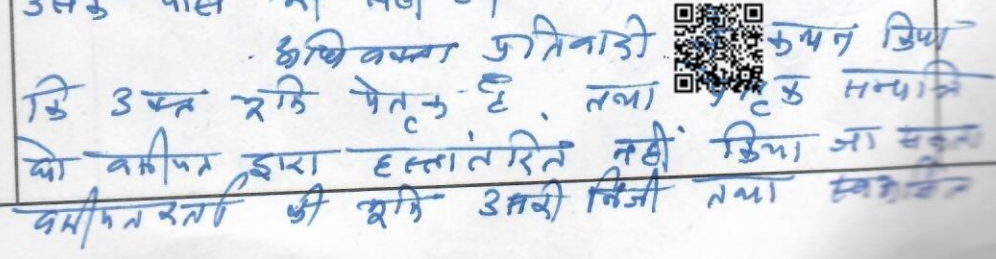 उसके पास
अधिवक्ता प्रतिवादी कथन किया
कि उक्त भूमि पैतृक है, तथा पैतृक सम्पत्ति
को वसीयत द्वारा हस्तांतरित नहीं किया जा सकता
वसीयतकर्ता की भूमि उसकी निजी तथा स्वअर्जित